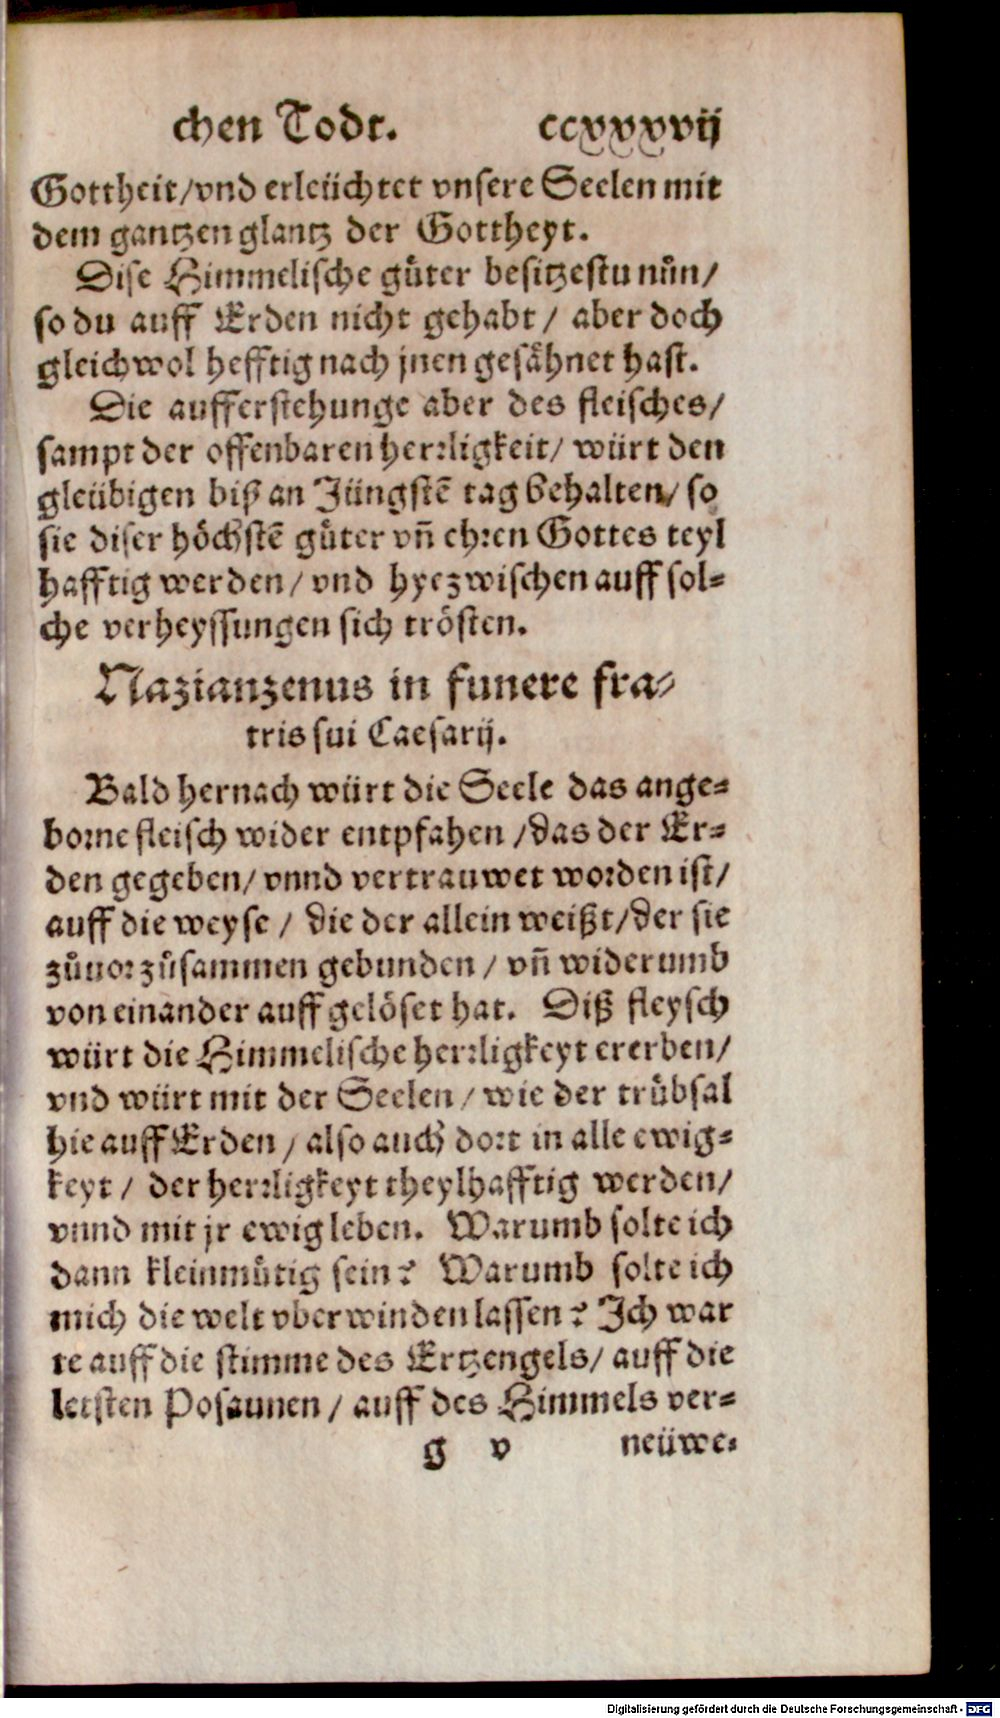 chen Todt. ccxxxvij
Gottheit/vnd erleüchtet vnsere Seelen mit
dem gantzen glantz der Gottheyt.
Dise Himmelische guͤter besitzestu nuͤn/
so du auff Erden nicht gehabt / aber doch
gleichwol hefftig nach jnen gesaͤhnet hast.
Die aufferstehunge aber des fleisches/
sampt der offenbaren herrligkeit/ würt den
gleübigen biß an Jüngstē tag behalten/ so
sie diser hoͤchstē guͤter vñ ehren Gottes teyl
hafftig werden/ vnd hyezwischen auff sol⸗
che verheyssungen sich troͤsten.
Nazianzenus in funere fra⸗
tris sui Caesarij.
Bald hernach würt die Seele das ange⸗
borne fleisch wider entpfahen /das der Er⸗
den gegeben/ vnnd vertrauwet worden ist/
auff die weyse / die der allein weißt/der sie
zuͤuor zuͤsammen gebunden / vñ widerumb
von einander auff geloͤset hat. Diß fleysch
würt die Himmelische herrligkeyt ererben/
vnd würt mit der Seelen / wie der truͤbsal
hie auff Erden / also auch dort in alle ewig⸗
keyt / der herrligkeyt theylhafftig werden/
vnnd mit jr ewig leben. Warumb solte ich
dann kleinmuͤtig sein? Warumb solte ich
mich die welt vberwinden lassen? Ich war
te auff die stimme des Ertzengels/ auff die
letsten Posaunen / auff des Himmels ver⸗
g v neüwe⸗
Digitalisierung gefördert durch die Deutsche Forschungsgemeinschaft - DFG